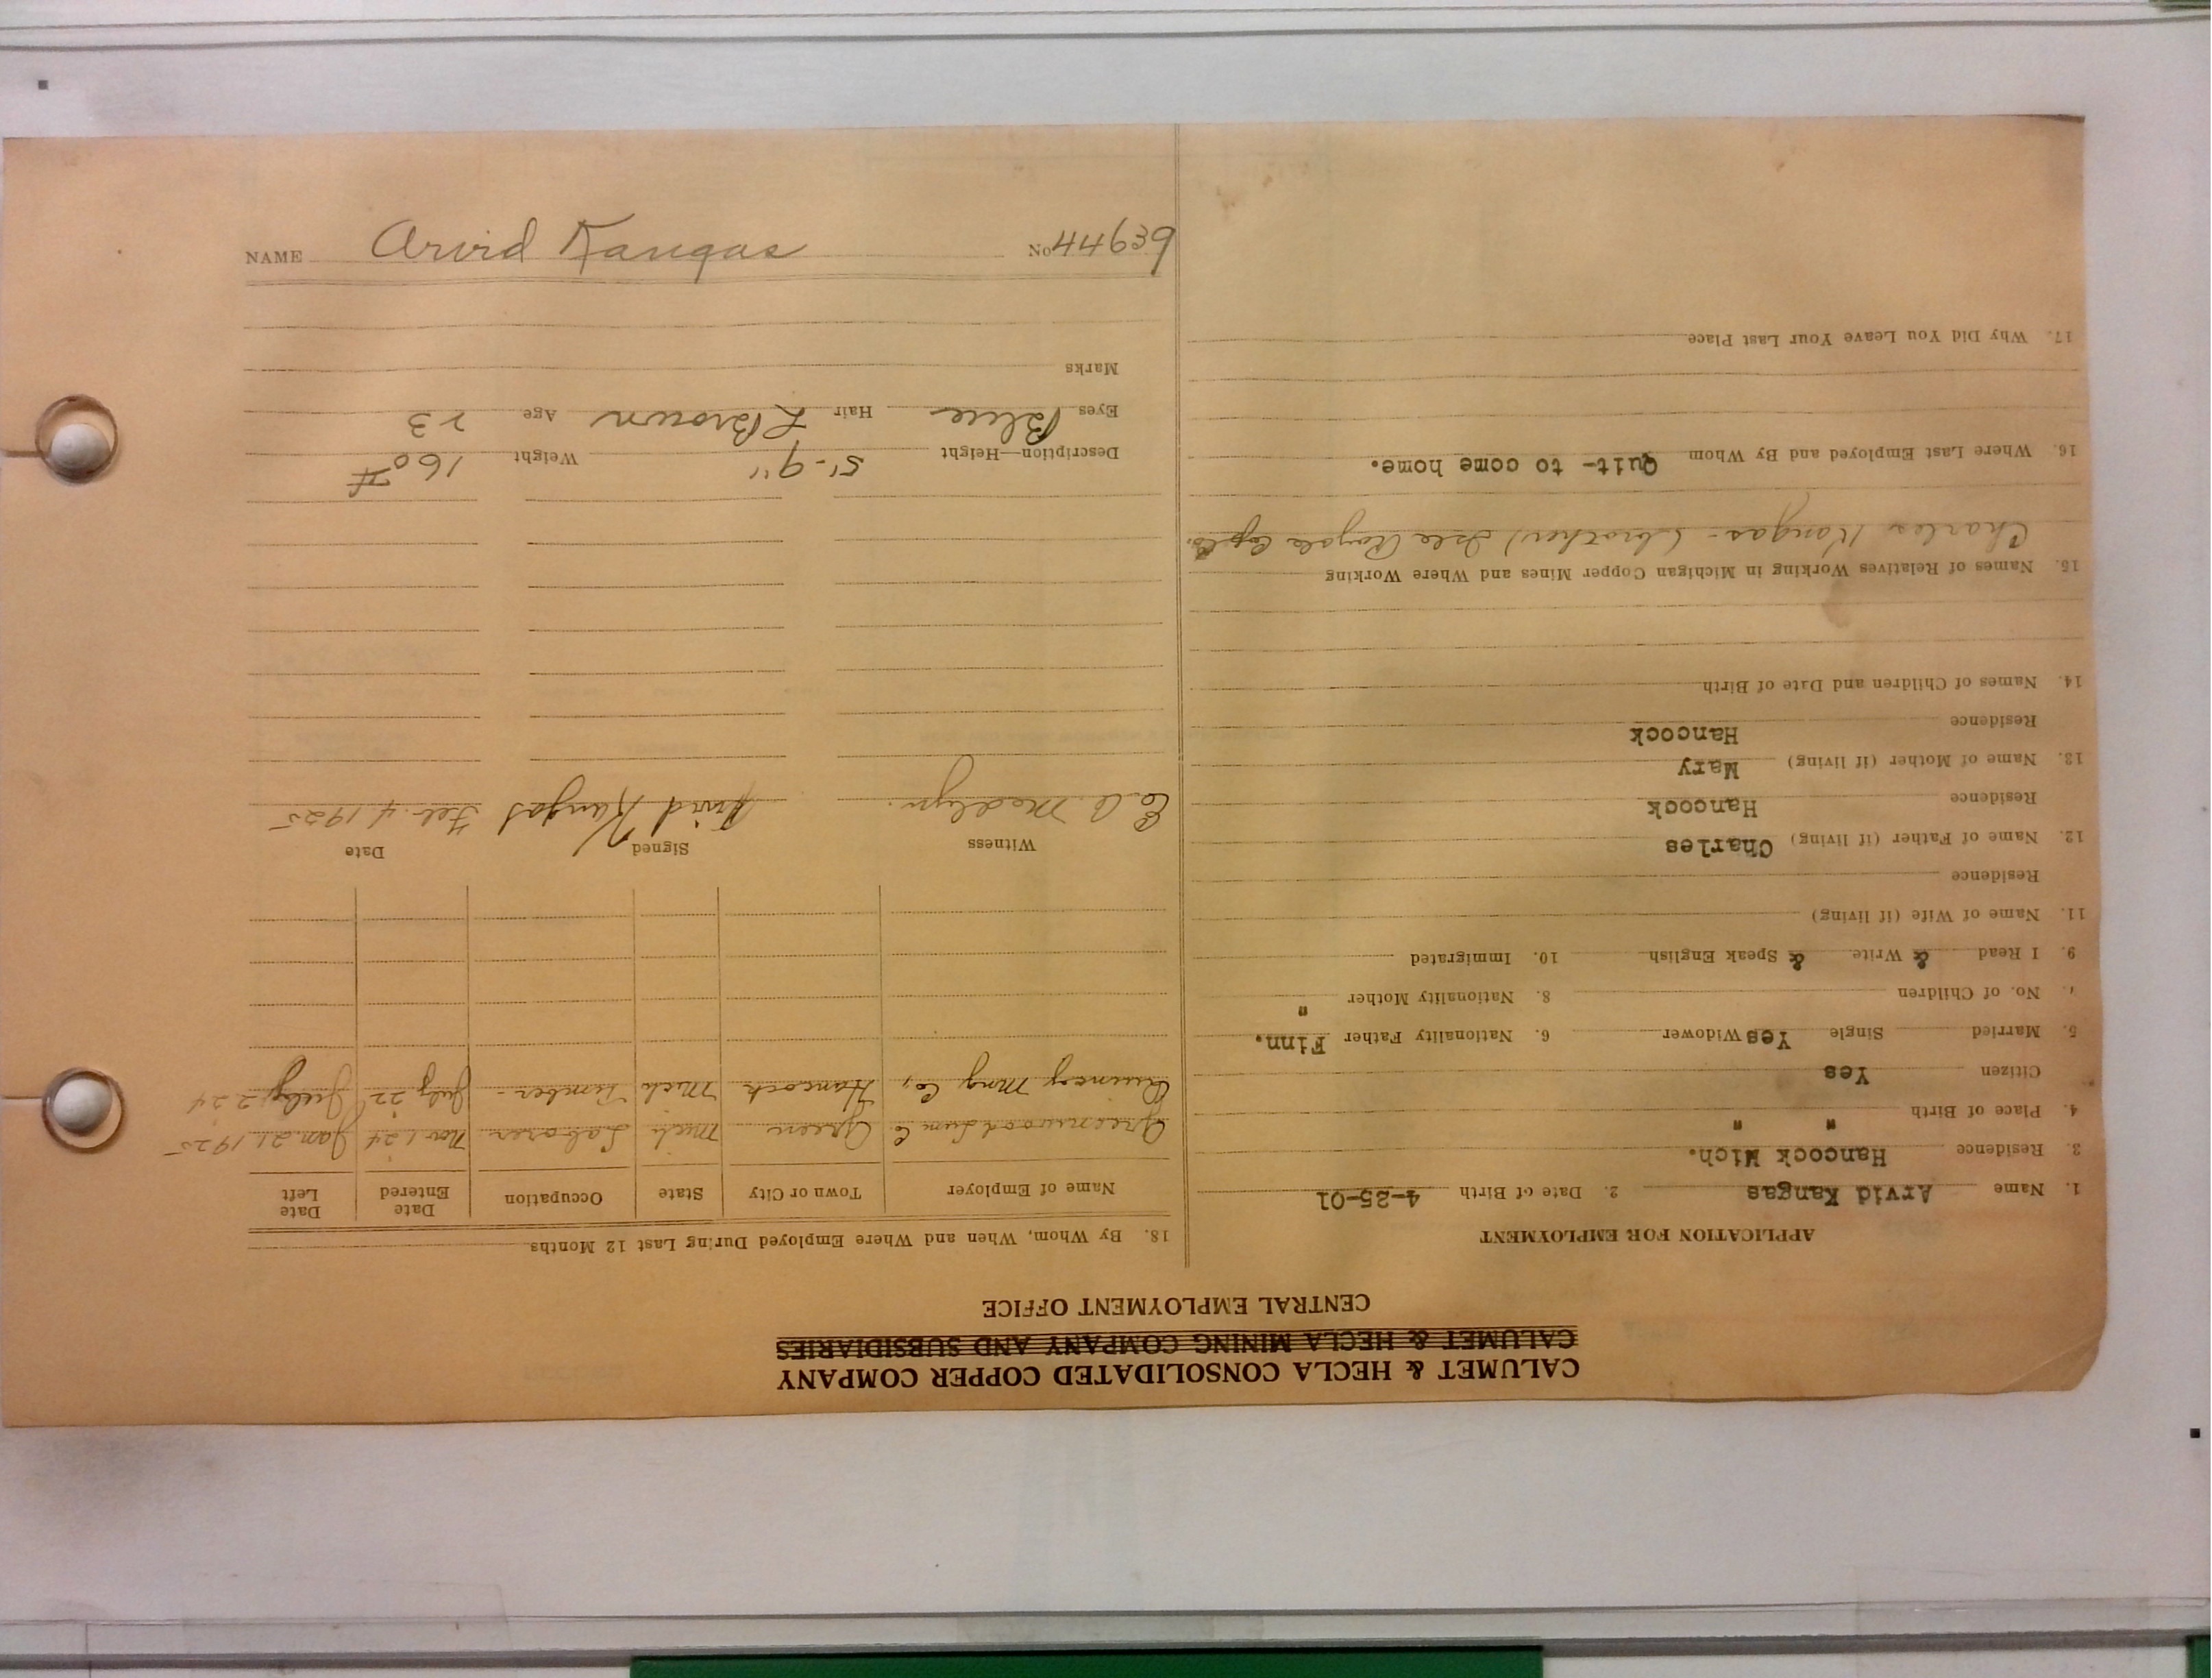 CALUMET & HECLA CONSOLIDATED COPPER COMPANY
CALUMET & HECLA MINING COMPANY AND SUBSIDIARIES
CENTRAL EMPLOYMENT OFFICE
APPLICATION FOR EMPLOYMENT
1. Name Arvid Kangas 2. Date of Birth 4-25-01
3. Residence Hancock Mich.
4. Place of Birth " "
Citizen Yes
5. Married Single Yes Widower 6. Nationality Father Finn.
7. No. of Children 8. Nationality Mother "
9. I Read & Write & Speak English 10. Immigrated
11. Name of Wife (if living)
Residence
12. Name of Father (if living) Charles
Residence Hancock
13. Name of Mother (if living) Mary
Residence Hancock
14. Names of Children and Date of Birth
15. Names of Relatives Working in Michigan Copper Mines and Where Working
Charles Kangas - (brother) Isle Royale
16. Where Last Employed and By Whom Quit- to come home.
17. Why Did You Leave Your Last Place
18. By Whom, When and Where Employed During Last 12 Months
Name of Employer Town or City State Occupation Date Entered Date Left
Greenwood Lum Co Green Mich Laborer Nov 1 24 Jan. 21 1925
Quincy Mng Co, Hancock Mich Timber- July 22 July 2 24
Witness Signed Date
Arvid Kangas Feb. 4 1925
Description—Height 5'-9" Weight 160 #
Eyes Blue Hair L Brown Age 23
Marks
NAME Arvid Kangas No 44639